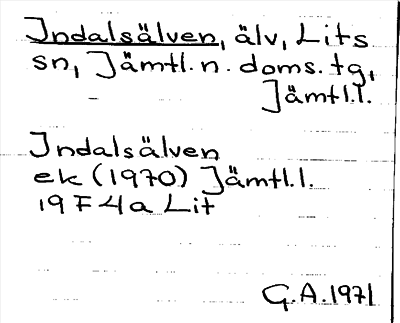 Indalsälven, älv, Lits
sn, Jämtl. n. doms. tg,
Jämtl.l.
Indalsälven
ek (1970) Jämtl.l.
19F4a Lit
G.A. 1971